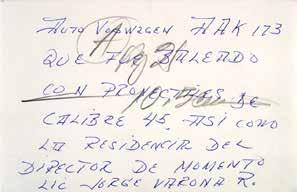 AUTO VOLSWAGEN AAK 173
QUE FUE BALEADO
CON PROYECTILES DE
CALIBRE 45. ASI COMO
LA RESIDENCIA DEL
DIRECTOR DE MOMENTO
LIC JORGE VARONA R.